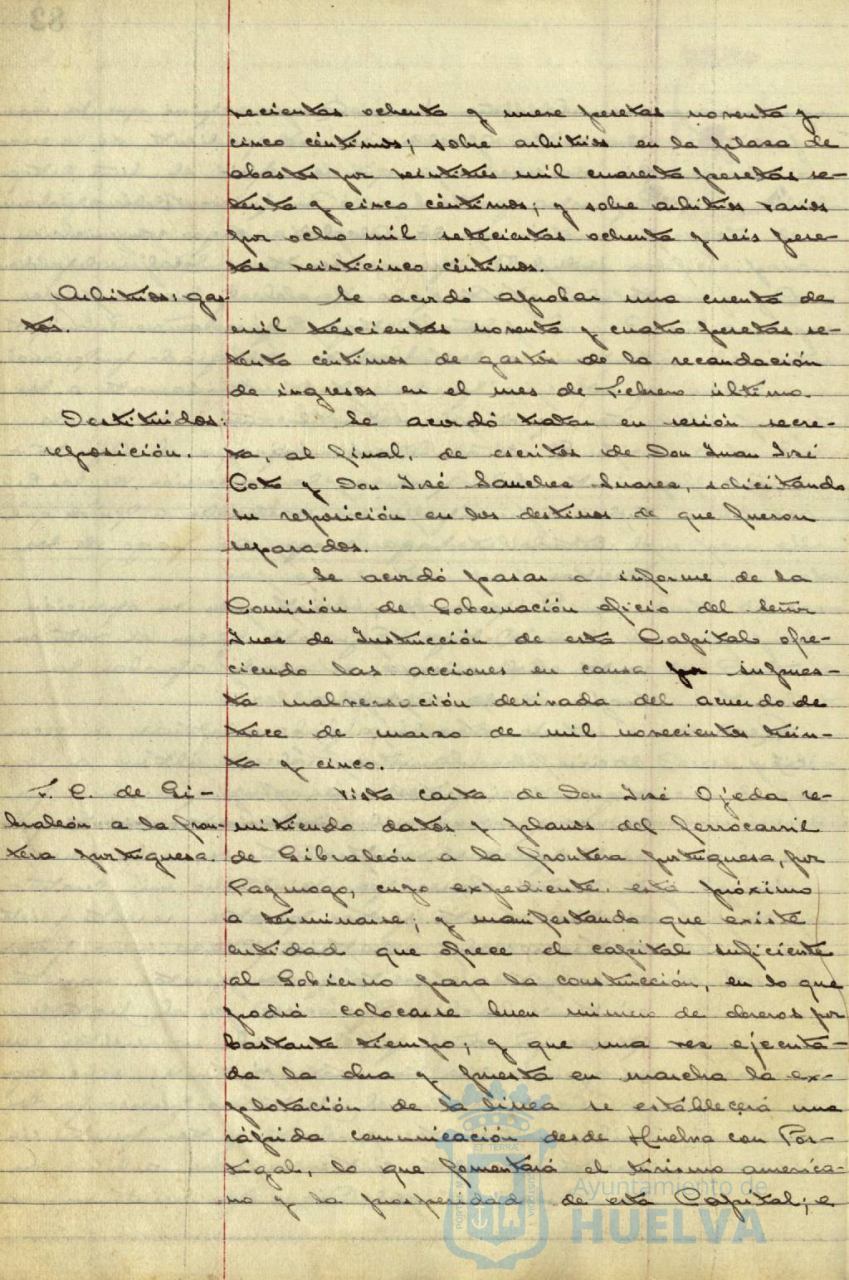 recientas ochenta y nueve pesetas noventa y
cinco céntimos; sobre arbitrios en la plaza de
abastos por veintitres mil cuarenta pesetas se-
tenta y cinco céntimos; y sobre arbitrios varios
por ocho mil setecientas ochenta y seis pese-
tas veinticinco céntimos.
Arbitrios: gas-
tos.
Se acordó aprobar una cuenta de
mil trescientas noventa y cuatro pesetas se-
tenta céntimos de gastos de la recaudación
de ingresos en el mes de Febrero último.
Destituidos:
reposición.
Se acordó tratar en sesión secre-
ta, al final, de escritos de Don Juan José
Coto y Don José Sanchez Suarez, solicitando
su reposición en los destinos de que fueron
separados.
Se acordó pasar a informe de la
Comisión de Gobernación oficio del Señor
Juez de Instrucción de esta Capital ofre-
ciendo las acciones en causa por supues-
ta malversación derivada del acuerdo de
trece de marzo de mil novecientos trein-
ta y cinco.
F. C. de Gi-
braleón a la fron-
tera portuguesa.
Vista carta de Don José Ojeda re-
mitiendo datos y planos del ferrocarril
de Gibraleón a la frontera portuguesa, por
Paymogo, cuyo expediente está próximo
a terminarse; y manifestando que existe
entidad que ofrece el capital suficiente
al Gobierno para la construcción, en lo que
podrá colocarse buen número de obreros por
bastante tiempo; y que una vez ejecuta-
da la obra y puesta en marcha la ex-
plotación de la línea se establecerá una
rápida comunicación desde Huelva con Por-
tugal, lo que fomentará el turismo america-
no y la prosperidad de esta Capital; e
Ayuntamiento de
HUELVA